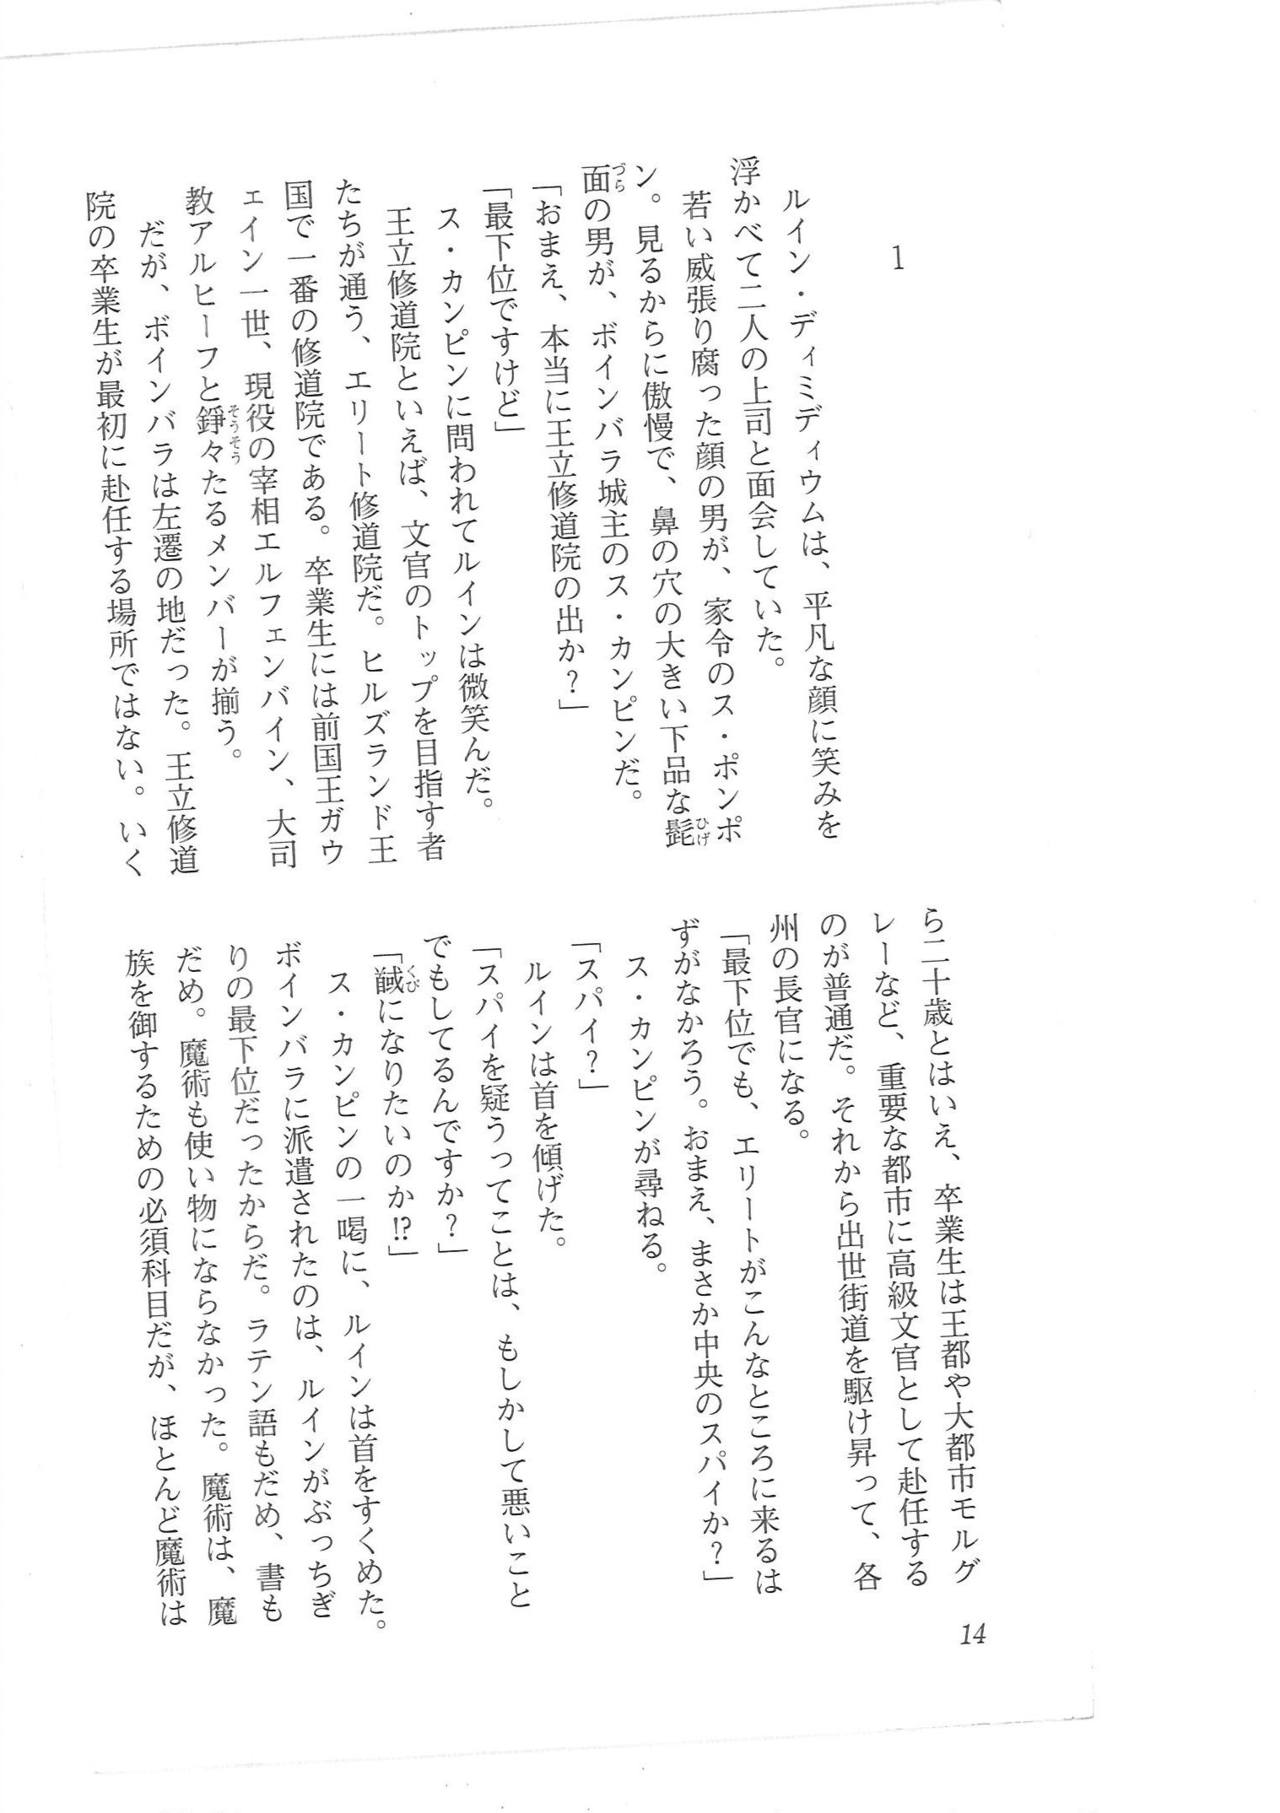 1
ルイン・ディミディウムは、平凡な顔に笑みを
浮かべて二人の上司と面会していた。
若い威張り腐った顔の男が、家令のス・ポンポ
ン。見るからに傲慢で、鼻の穴の大きい下品な髭
面の男が、ボインバラ城主のス・カンピンだ。
「おまえ、本当に王立修道院の出か？」
「最下位ですけど」
ス・カンピンに問われてルインは微笑んだ。
王立修道院といえば、文官のトップを目指す者
たちが通う、エリート修道院だ。ヒルズランド王
国で一番の修道院である。卒業生には前国王ガウ
ェイン一世、現役の宰相エルフェンバイン、大司
教アルヒーフと錚々たるメンバーが揃う。
だが、ボインバラは左遷の地だった。王立修道
院の卒業生が最初に赴任する場所ではない。いく
ら二十歳とはいえ、卒業生は王都や大都市モルグ
レーなど、重要な都市に高級文官として赴任する
のが普通だ。それから出世街道を駆け昇って、各
州の長官になる。
「最下位でも、エリートがこんなところに来るは
ずがなかろう。おまえ、まさか中央のスパイか？」
ス・カンピンが尋ねる。
「スパイ？」
ルインは首を傾げた。
「スパイを疑うってことは、もしかして悪いこと
でもしてるんですか？」
「馘になりたいのか!?」
ス・カンピンの一喝に、ルインは首をすくめた。
ボインバラに派遣されたのは、ルインがぶっちぎ
りの最下位だったからだ。ラテン語もだめ、書も
だめ。魔術も使い物にならなかった。魔術は、魔
族を御するための必須科目だが、ほとんど魔術は
14